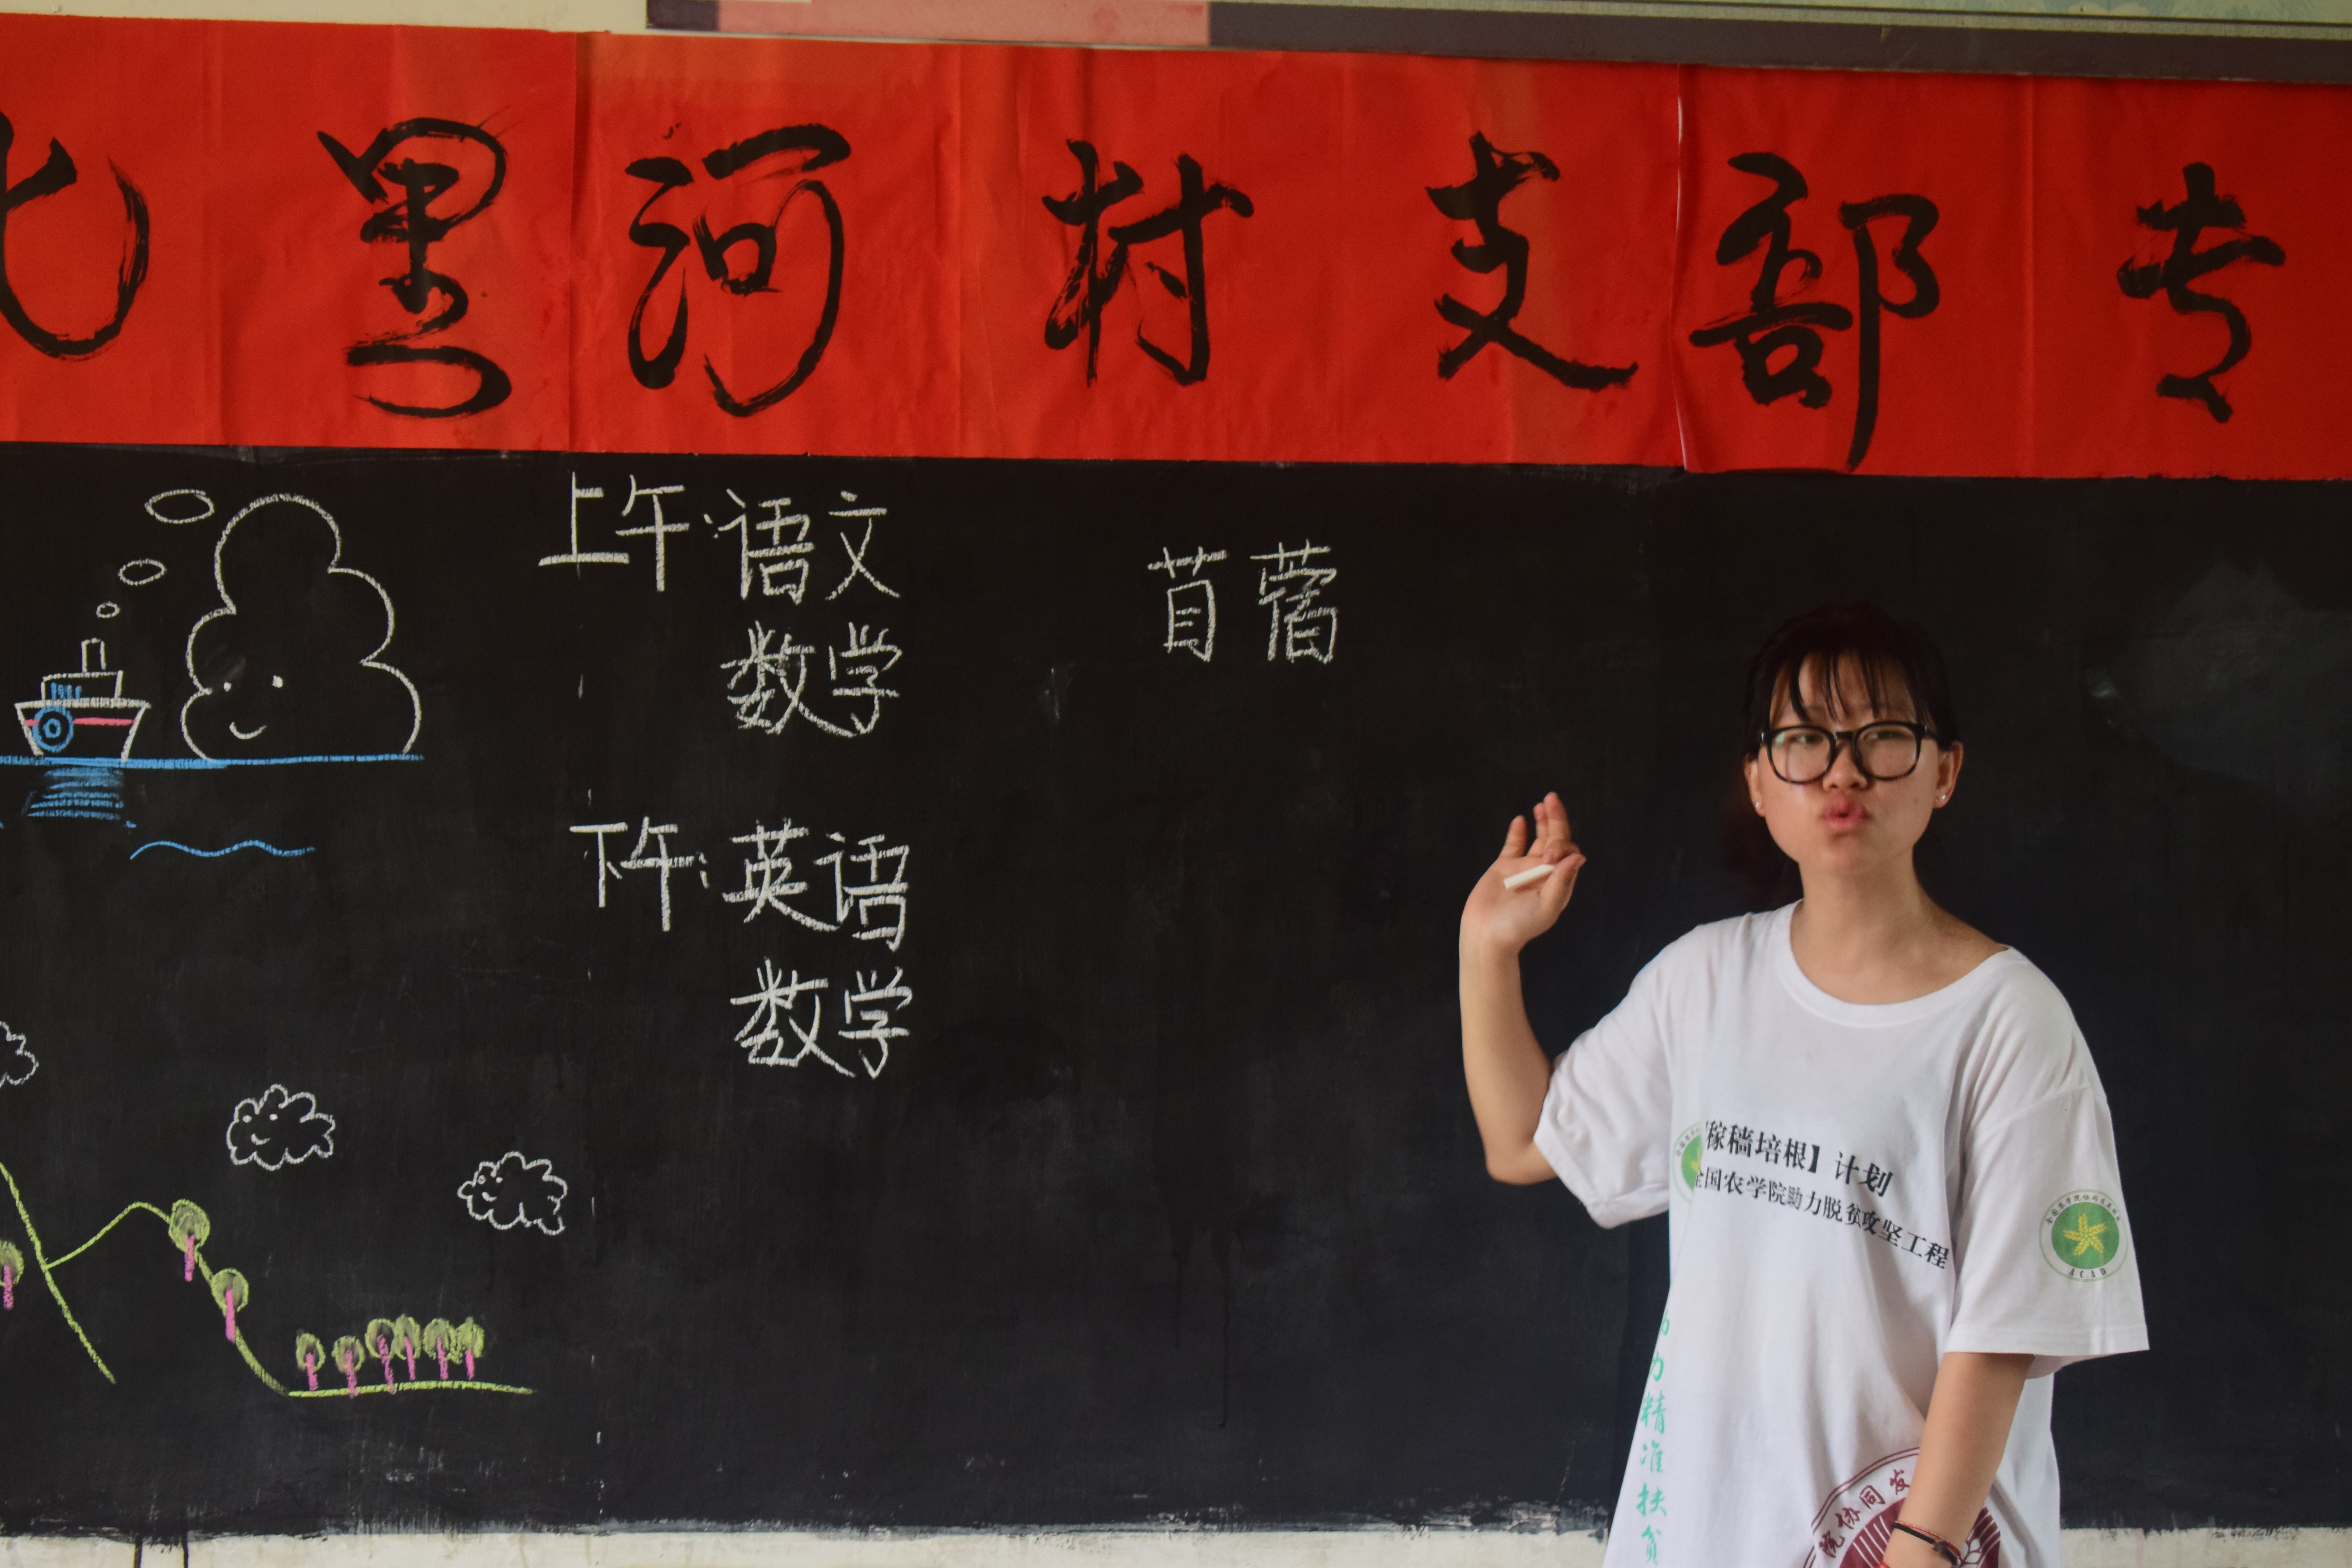 北黑河村支部专
上午:语文
数学
下午:英语
数学
苜蓿
稼穑培根】计划
全国农学院助力脱贫攻坚工程
力精准扶贫
院协同发
ACAD